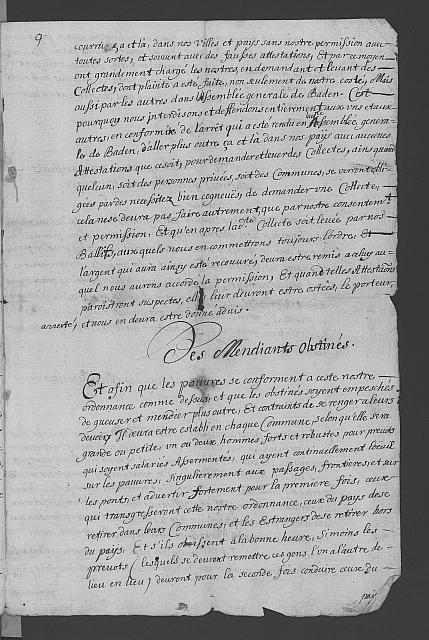 9
courir, ça et là, dans nos villes et païs sans nostre permission avec
toutes sortes, et souvent avec des fausses attestations, Et par ce moyen
ont grandement chargé les nostres, en demandant et levant des
Collectes, dont plainte a esté faite, non seulement de nostre costé, Mais
aussi par les autres dans l'assemblée generale de Baden. C'est
pourquoy nous interdisons et deffendons entierement aux uns et aux
autres, en conformité de l'arrêt qui a esté rendu en Assemblée genera-
le de Baden, d'aller plus outre ça et là dans nos païs avec aucunes
Attestations que ce soit, pour demander et lever des Collectes, ains quand
quelcun, soit des personnes privées, soit des Communes, se verront obli-
gées par des necessitez bien cogneuës, de demander une Collecte,
cela ne se devra pas faire autrement, que par nostre consentemt
et permission, Et qu'en apres lad.te Collecte soit levée par nos
Ballifs, auxquels nous en commettrons toujours l'ordre, Et
l'argent qui aura ainsy esté recouvré, devra estre remis a celuy au-
quel nous aurons accordé la permission, Et quand telles Attestaõns
paroistront suspectes, elles leur devront estre ostées, le porteur
arresté, et nous en devra estre donné advis.
Des Mendiants Obstinés.
Et afin que les pauvres se conforment a ceste nostre
ordonnance comme dessus, et que les obstinés soyent empeschés
de gueuser et mendier plus outre, Et contraints de se renger a leurs
devoirs Il devra estre establi en chaque Commune, selon qu'elle sera
grande ou petite, un ou deux hommes forts et robustes pour prevots
qui soyent salariés Assermontés, qui ayent continuellement l'oeüil
sur les pauvres, singulierement aux passages, frontieres, et sur
les ponts, et advertir fortement pour la premiere fois, ceux
qui transgresseront cette nostre ordonnance, ceux du païs de se
retirer dans leurs Communes, et les Estrangers de se retirer hors
du païs, Et s'ils obeissent à la bonne heure, Si moins les
prevots (lesquels se devront remettre ces gens l'un a l'autre de
lieu en lieu) devront pour la seconde fois conduire ceux du
païs